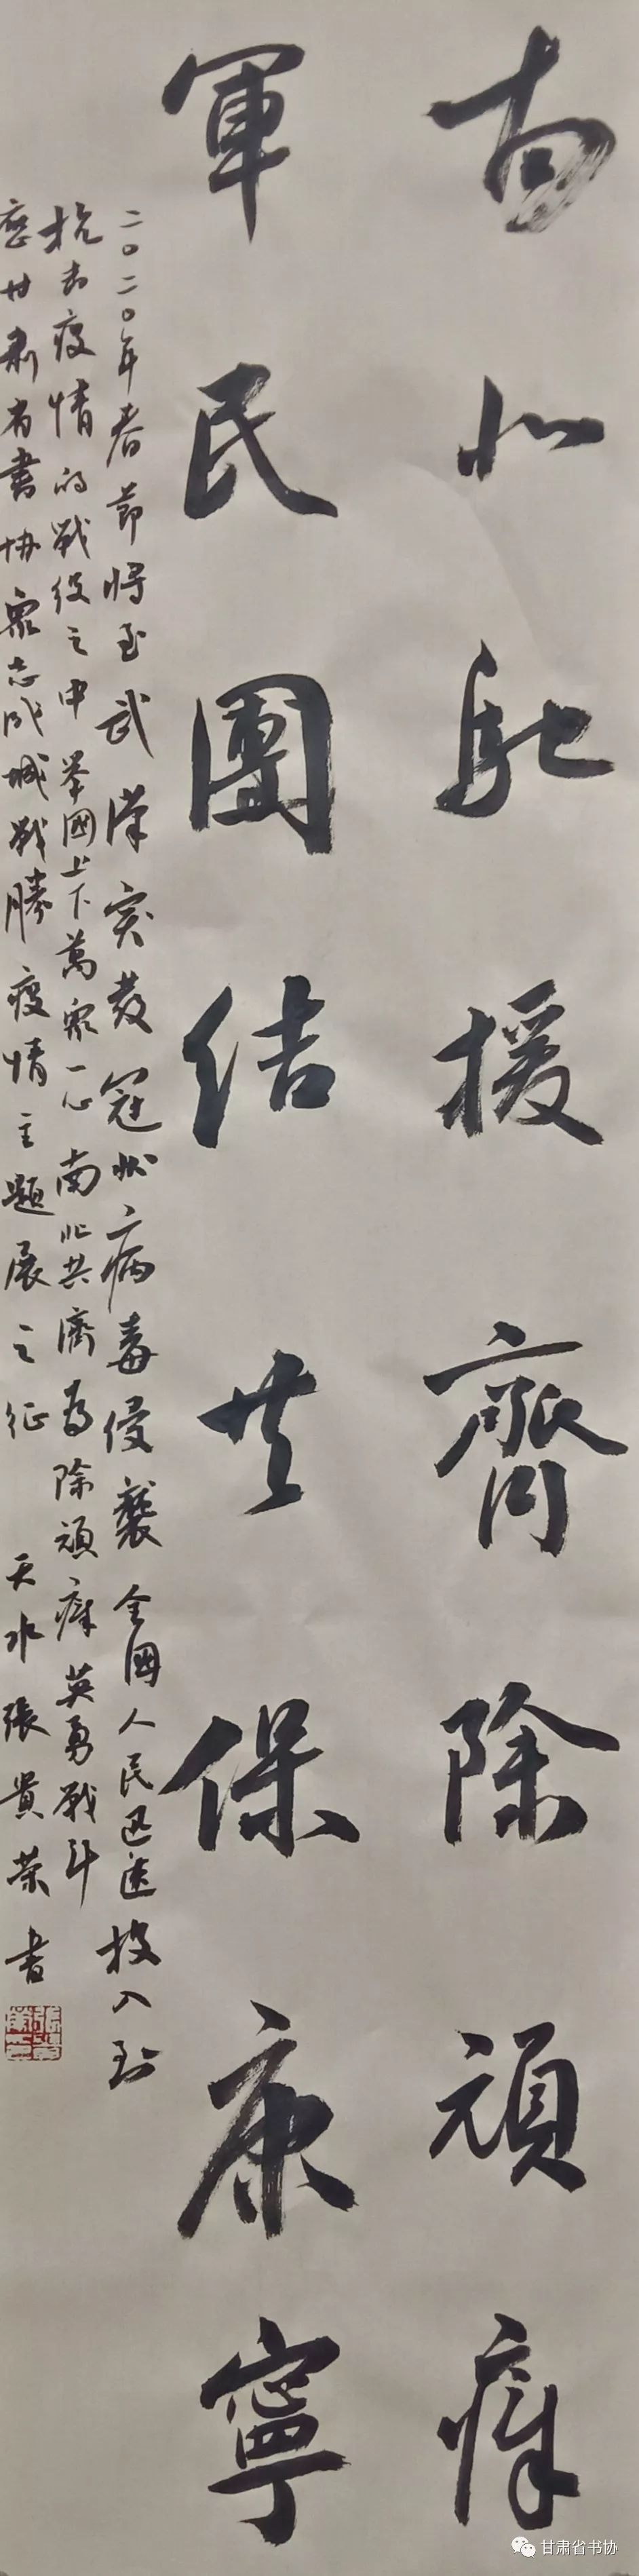 南北馳援齊除頑瘴
軍民團结共保康寧
二〇二〇年春節將至武漢突發冠状病毒侵襲全國人民迅速投入到
抗击疫情的戰役之中举國上下萬众一心南北共濟为除頑瘴英勇戰斗
應甘肃省書协眾志成城戰勝疫情主题展之征 天水張貴荣書
甘肃省书协